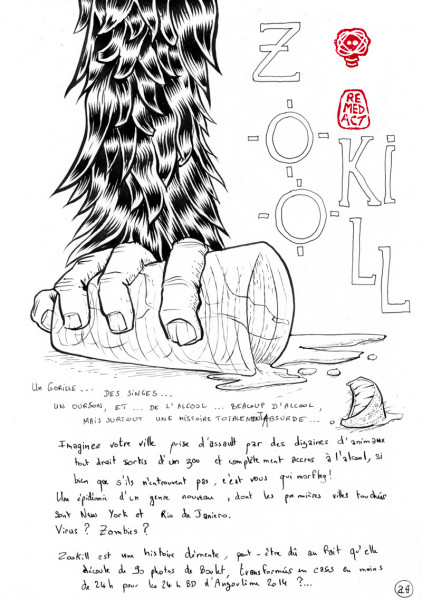 Z
O
O
Ki
LL
RE
MED
ACT
UN GORILLE... DES SINGES...
UN OURSON, ET... DE L'ALCOOL... BEAUCUP D'ALCOOL,
MAIS SURTOUT UNE HISTOIRE TOTALEMENT ABSURDE...
Imaginez votre ville prise d'assaut par des dizaines d'animaux
tout droit sortis d'un zoo et complètement accros à l'alcool, si
bien que s'ils n'entrouvent pas, c'est vous qui morflez!
Une épidémie d'un genre nouveau, dont les premières villes touchées
sont New York et Rio de Janiero.
Virus? Zombies?
Zookill est une histoire démente, peut-être dû au fait qu'elle
découle de 90 photos de Boulet, transformées en cases en moins
de 24h pour les 24h BD d'Angoulême 2014?...
28